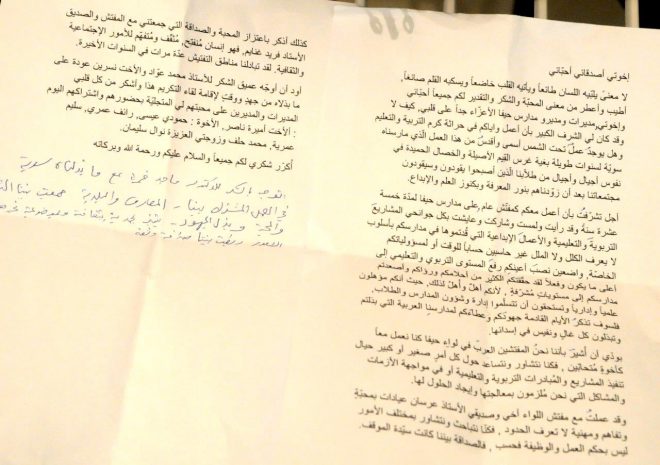 إخوتي أصدقائي أحبّائي
لا معنىً يلتيه اللسان طائعاً ويأتيه القلب خاضعاً ويسكبه القلم صائغاً,
أطيب وأعطر من معنى المحبّة والشكر والتقدير لكم جميعاً أحبّائي
وإخوتي,مديرات ومديرو مدارس حيفا الأعزّاء جداً على قلبي, كيف لا
وقد كان لي الشرف الكبير بأن أعمل وإياكم في حراثة كرم التربية والتعليم
وهل يوجدُ عملٌ تحت الشمس أسمى وأقدسُ من هذا العمل الذي مارسناه
سويّة لسنوات طويلة بغية غرس القِيم الأصيلة والخصال الحميدة في
نفوس أجيال وأجيال من طلّابنا الذين أصبحوا يقودون وسيقودون
مجتمعاتنا بعد أن زوّدناهم بنور المعرفة وبكنوز العلم والإبداع.
أجل تشرّفتُ بأن أعمل معكم كمفتّش عام على مدارس حيفا لمدة خمسة
عشرة سنة وقد رأيت ولمست وشاركت وعايشت بكل جوانحي المشاريع
التربوية والتعليمية والأعمال الإبداعية التي قُدتموها في مدارسكم بأسلوب
لا يعرف الكلل ولا الملل غير حاسبين حساباً للوقت أو لمسؤولياتكم
الخاصّة. واضعين نصبَ أعينكم رفع المستوى التربوي والتعليمي إلى
أعلى ما يكون وفعلاً لقد حققتكم الكثير من أحلامكم ورؤاكم وأصعدتم
مدارسكم إلى مستويات مُشرّفة , لأنكم أهلٌ وأهلٌ لذلك, حيث أنكم مؤهلون
علمياً وإدارياً وتستحقون أن تتسلّموا إدارة وشؤون المدارس والطلاب,
فلسوف تذكرُ الأيام القادمة جهودَكم وعطاءَكم لمدارسنا العربية التي بذلتم
وتبذلون كل غالٍ ونفيس في إسدائها.
بودّي أن أشيرَ بأننا نحنُ المفتشين العربُ في لواءِ حيفا كنا نعمل معاً
كأخوةٍ مُتحابّين , فكنا نتشاور ونتساءد حول كل أمرٍ صغير أو كبير حيال
تنفيذ المشاريع والمُبادرات التربوية والتعليمية أو في مواجهة الأزمات
والمشاكل التي نحن مُلزمون بمعالجتها وإيجاد الحلول لها.
وقد عملتُ مع مفتش اللواء أخي وصديقي الأستاذ عرسان عيادات بمحبّةٍ
وتفاهم ومهنية لا تعرف الحدود , فكنّا نتباحث ونتشاور بمختلف الأمور
ليس بحكم العمل والوظيفة فحسب , فالصداقة بيننا كانت سيّدة الموقف.
كذلك أذكر باعتزاز المحبة والصداقة التي جمعتني مع المفتش والصديق
الأستاذ فريد غنايم. فهو إنسان مُنفتح, مُثقّف ومُتفهّم للأمور الإجتماعية
والثقافية. لقد تبادلنا مناطق التفتيش عدّة مرات في السنوات الأخيرة.
أود أن أوجّه عميق الشكر للأستاذ محمد عوّاد والأخت نسرين عودة على
ما بذلاه من جهدٍ ووقتٍ لإقامة لقاء التكريم هذا وأشكر من كل قلبي
المديرات والمديرين على محبتهم لي المتجليّة بحضورهم واشتراكهم اليوم
: الأخت أميرة ناصر, الأخوة : حمودي عيسى, رائف عمري, سليم
عمرية, محمد خلف وزوجتي العزيزة نوال سليمان.
أكرّر شكري لكم جميعاً والسلام عليكم ورحمة الله وبركاته